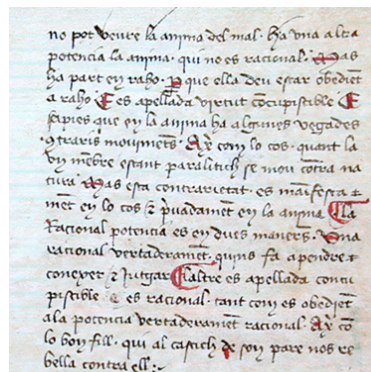 no pot veure la anima del mal · ha vna altra
potencia la anima · qui no es racional · Mas
ha part en raho · Per que ella deu estar obediēt
a raho E es apellada virtut cōcupiscible · E
sapies que en la anima ha algunes vegades
ꝯtraris moviments · Axi com lo cos · quant la
vn mēbre estant paralitich se mou cōtra na
tura · Mas esta contrarietat · es manifesta
mēt en lo cos & p̄uadamēt en la anima · La
Racional potencia es en dues maners · Una
racional vertaderamēt · quins fa apendre ·
conexer & Jutgar · Laltre es apellada concu
piscible · e es racional · tant com es obediēt
ala potencia vertaderamēt racional · Axi cō
lo bon fill · qui al castich de son pare nos re
bella contra ell :~